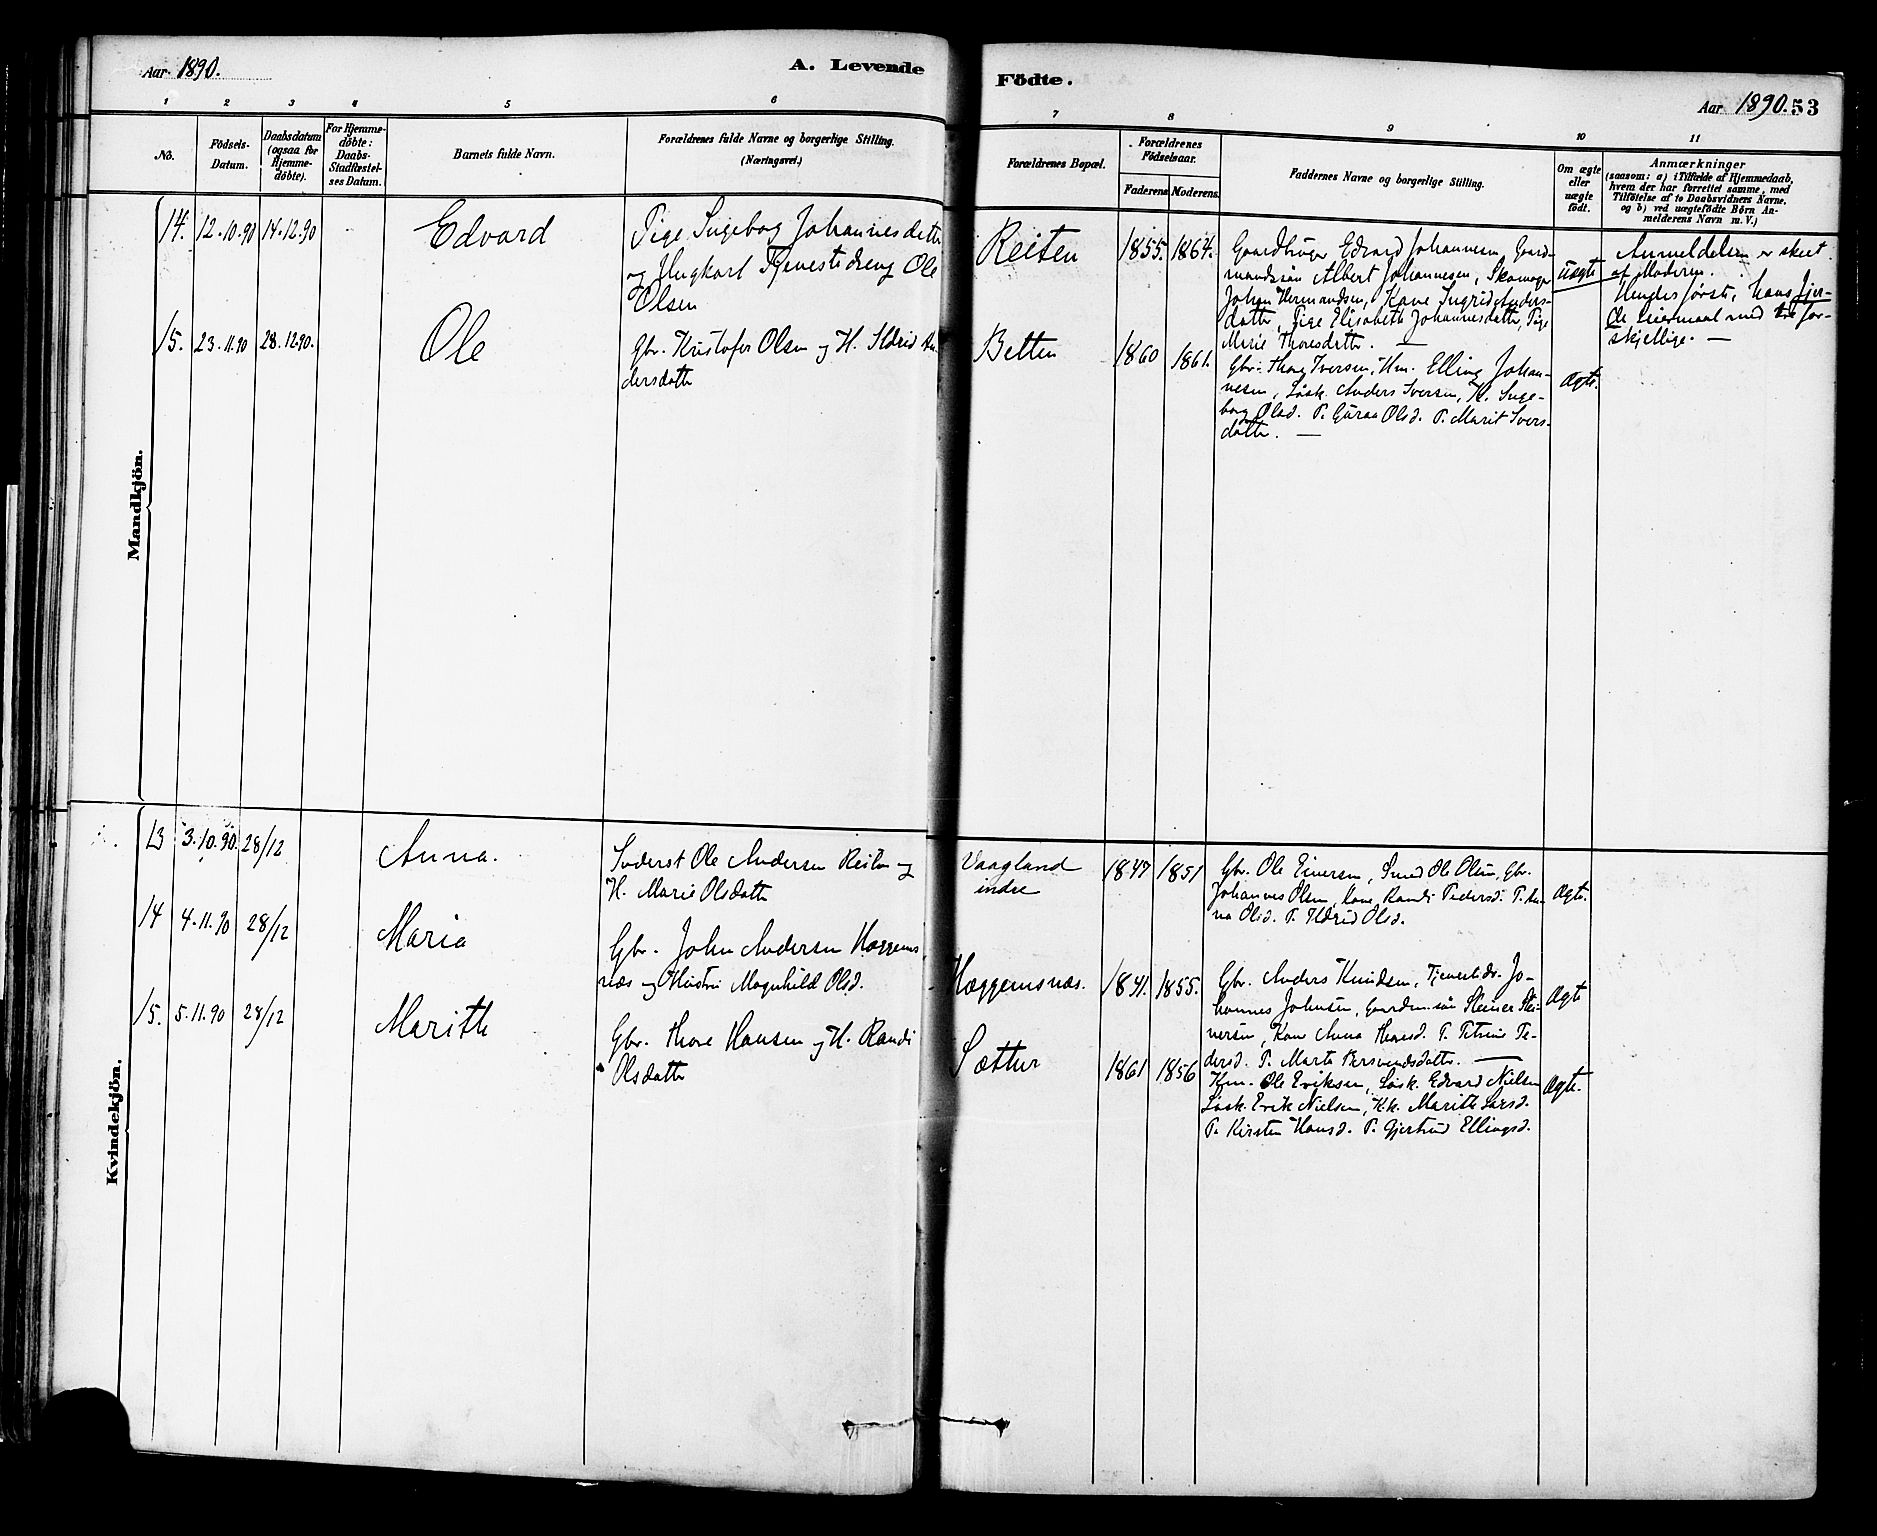 Aar 1890.
A. Levende
Födte.
Aar 1890. 53
1 2 3 4 5 6
7 8 9 10 11
Nö.
Födsels-
Datum.
Daabsdatum
(ogsaa for
Hjemme-
döbte).
For Hjemme-
döbte:
Daabs-
Stadfæstel-
ses Datum.
Barnets fulde Navn.
Forældrenes fulde Navne og borgerlige Stilling.
(Næringsvei.)
Forældrenes Bopæl.
Forældrenes
Födselsaar.
Faderens Moderens.
Faddernes Navne og borgerlige Stilling.
Om ægte
eller
uægte
födt.
Anmærkninger
(saasom: a) i Tilfælde af Hjemmedaab,
hvem der har forrettet samme, med
Tilföielse af to Daabsvidners Navne,
og b) ved uægtefödte Börn An-
melderens Navn m. V.)
Mandkjön.
14. 12.10.90 14.12.90
Edvard
Pige Ingebog Johannesdatter
og Ungkarl Tjenestedreng Ole
Olsen
Reiten
1855. 1864.
Gaardbruger Edvard Johannesen, Gaard-
mandssön Albert Johannesen, Skomager
Johan Hermandsen, Kone Ingrid Anders-
datter, Pige Elisabeth Johannesdatter, Pige
Marie Thoresdatter. —
Uægte
Anmeldelsen er skeet
af Moderen.
Hendes første, hans fjer-
de leiermaal med tre for-
skjellige. —
15. 23.11.90 28.12.90.
Ole
Gbr. Kristofer Olsen og H. Ildrid An-
dersdatter
Betten
1860 1861.
Gbr. Thore Iversen, Hm. Elling Johan-
nesen, Løsk. Anders Iversen, K. Inge-
borg Olsd. P. Guraa Olsd. P. Marit Ivers-
datter. —
Ægte.
Kvindekjön.
13 3.10.90. 28/12
Anna.
Inderst Ole Andersen Reiten og
H. Marie Olsdatter
Vaagland
indre
1847 1851
Gbr. Ole Einersen, Smed Ole Olsen, Gbr.
Johannes Olsen, Kone Randi Pedersd. P. An-
na Olsd. P. Ildrid Olsd.
Ægte.
14 4.11.90 28/12
Maria
Gbr. John Andersen Hæggems-
næs og Hustru Magnhild Olsd.
Hæggemsnæs.
1841. 1855.
Gbr. Anders Knudsen, Tjenestedr. Jo-
hannes Johnsen, Gaardm.sön Steiner Stei-
nersen, Kone Anna Thoresd. P. Petrine Pe-
dersd. P. Marta Iversdatter. —
Ægte
15. 5.11.90 28/12
Marith
Gbr. Thore Hansen og H. Randi
Olsdatter
Sætter
1861 1856
Hm. Ole Eriksen, Løsk. Edvard Nielsen
Løsk. Erik Nielsen, Kk. Marith Larsd.
P. Kirsten Hansd. P. Gjertrud Ellingsd.
Ægte.